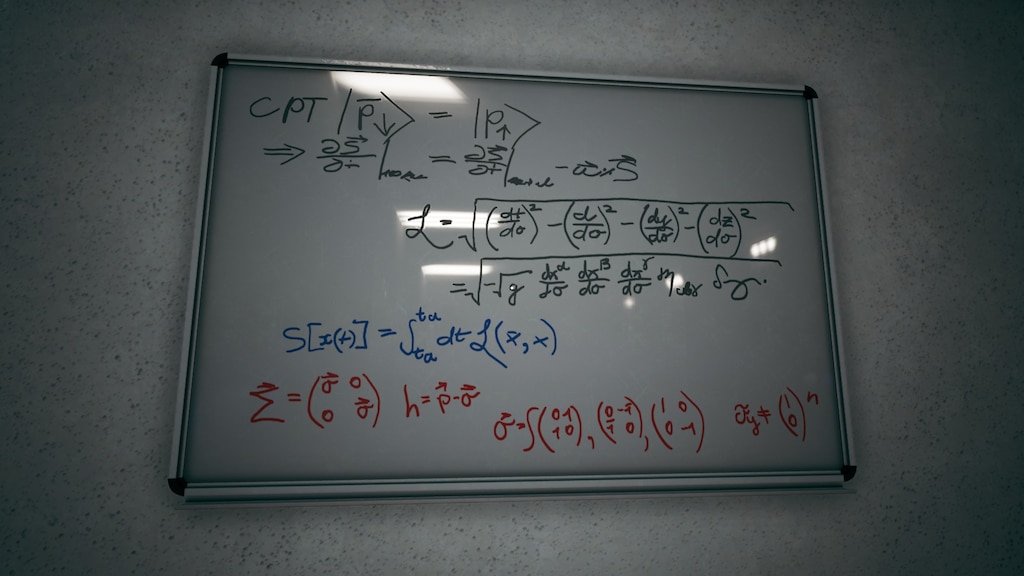 CPT |p̅↓⟩ = |p↑⟩
⇒ ∂S⃗/∂t| = ∂S⃗/∂t| - ω⃗×S⃗
ℒ = √((dt/dσ)² - (d/dσ)² - (dy/dσ)² - (dz/dσ)²)
= √(-√g dxᵅ/dσ dxᵝ/dσ dxᵞ/dσ
S[x(t)] = ∫ₜₐᵗᵃ dt ℒ(ẋ, x)
Σ⃗ = (σ⃗ 0 / 0 σ⃗) h = p⃗ - σ⃗
σ⃗ = ∫(0 -1 / 1 0), (0 -i / 1 0), (1 0 / 0 -1) ≠ (1 / 0)ⁿ